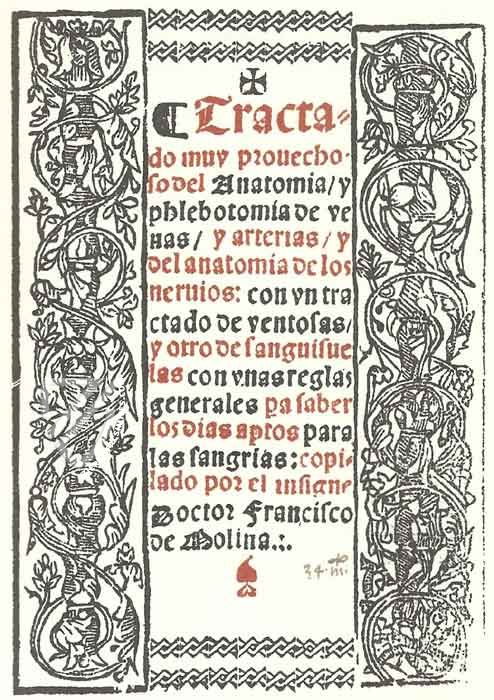 ✠
¶ Tracta-
do muy prouecho-
so del Anatomia/ y
phlebotomia de ve
nas/ y arterias/ y
del anatomia de los
neruios: con vn tra
ctado de ventosas/
y otro de sanguisue
las con vnas reglas
generales pa saber
los dias aptos para
las sangrias: copi-
lado por el insigne
Doctor Francisco
de Molina.:.